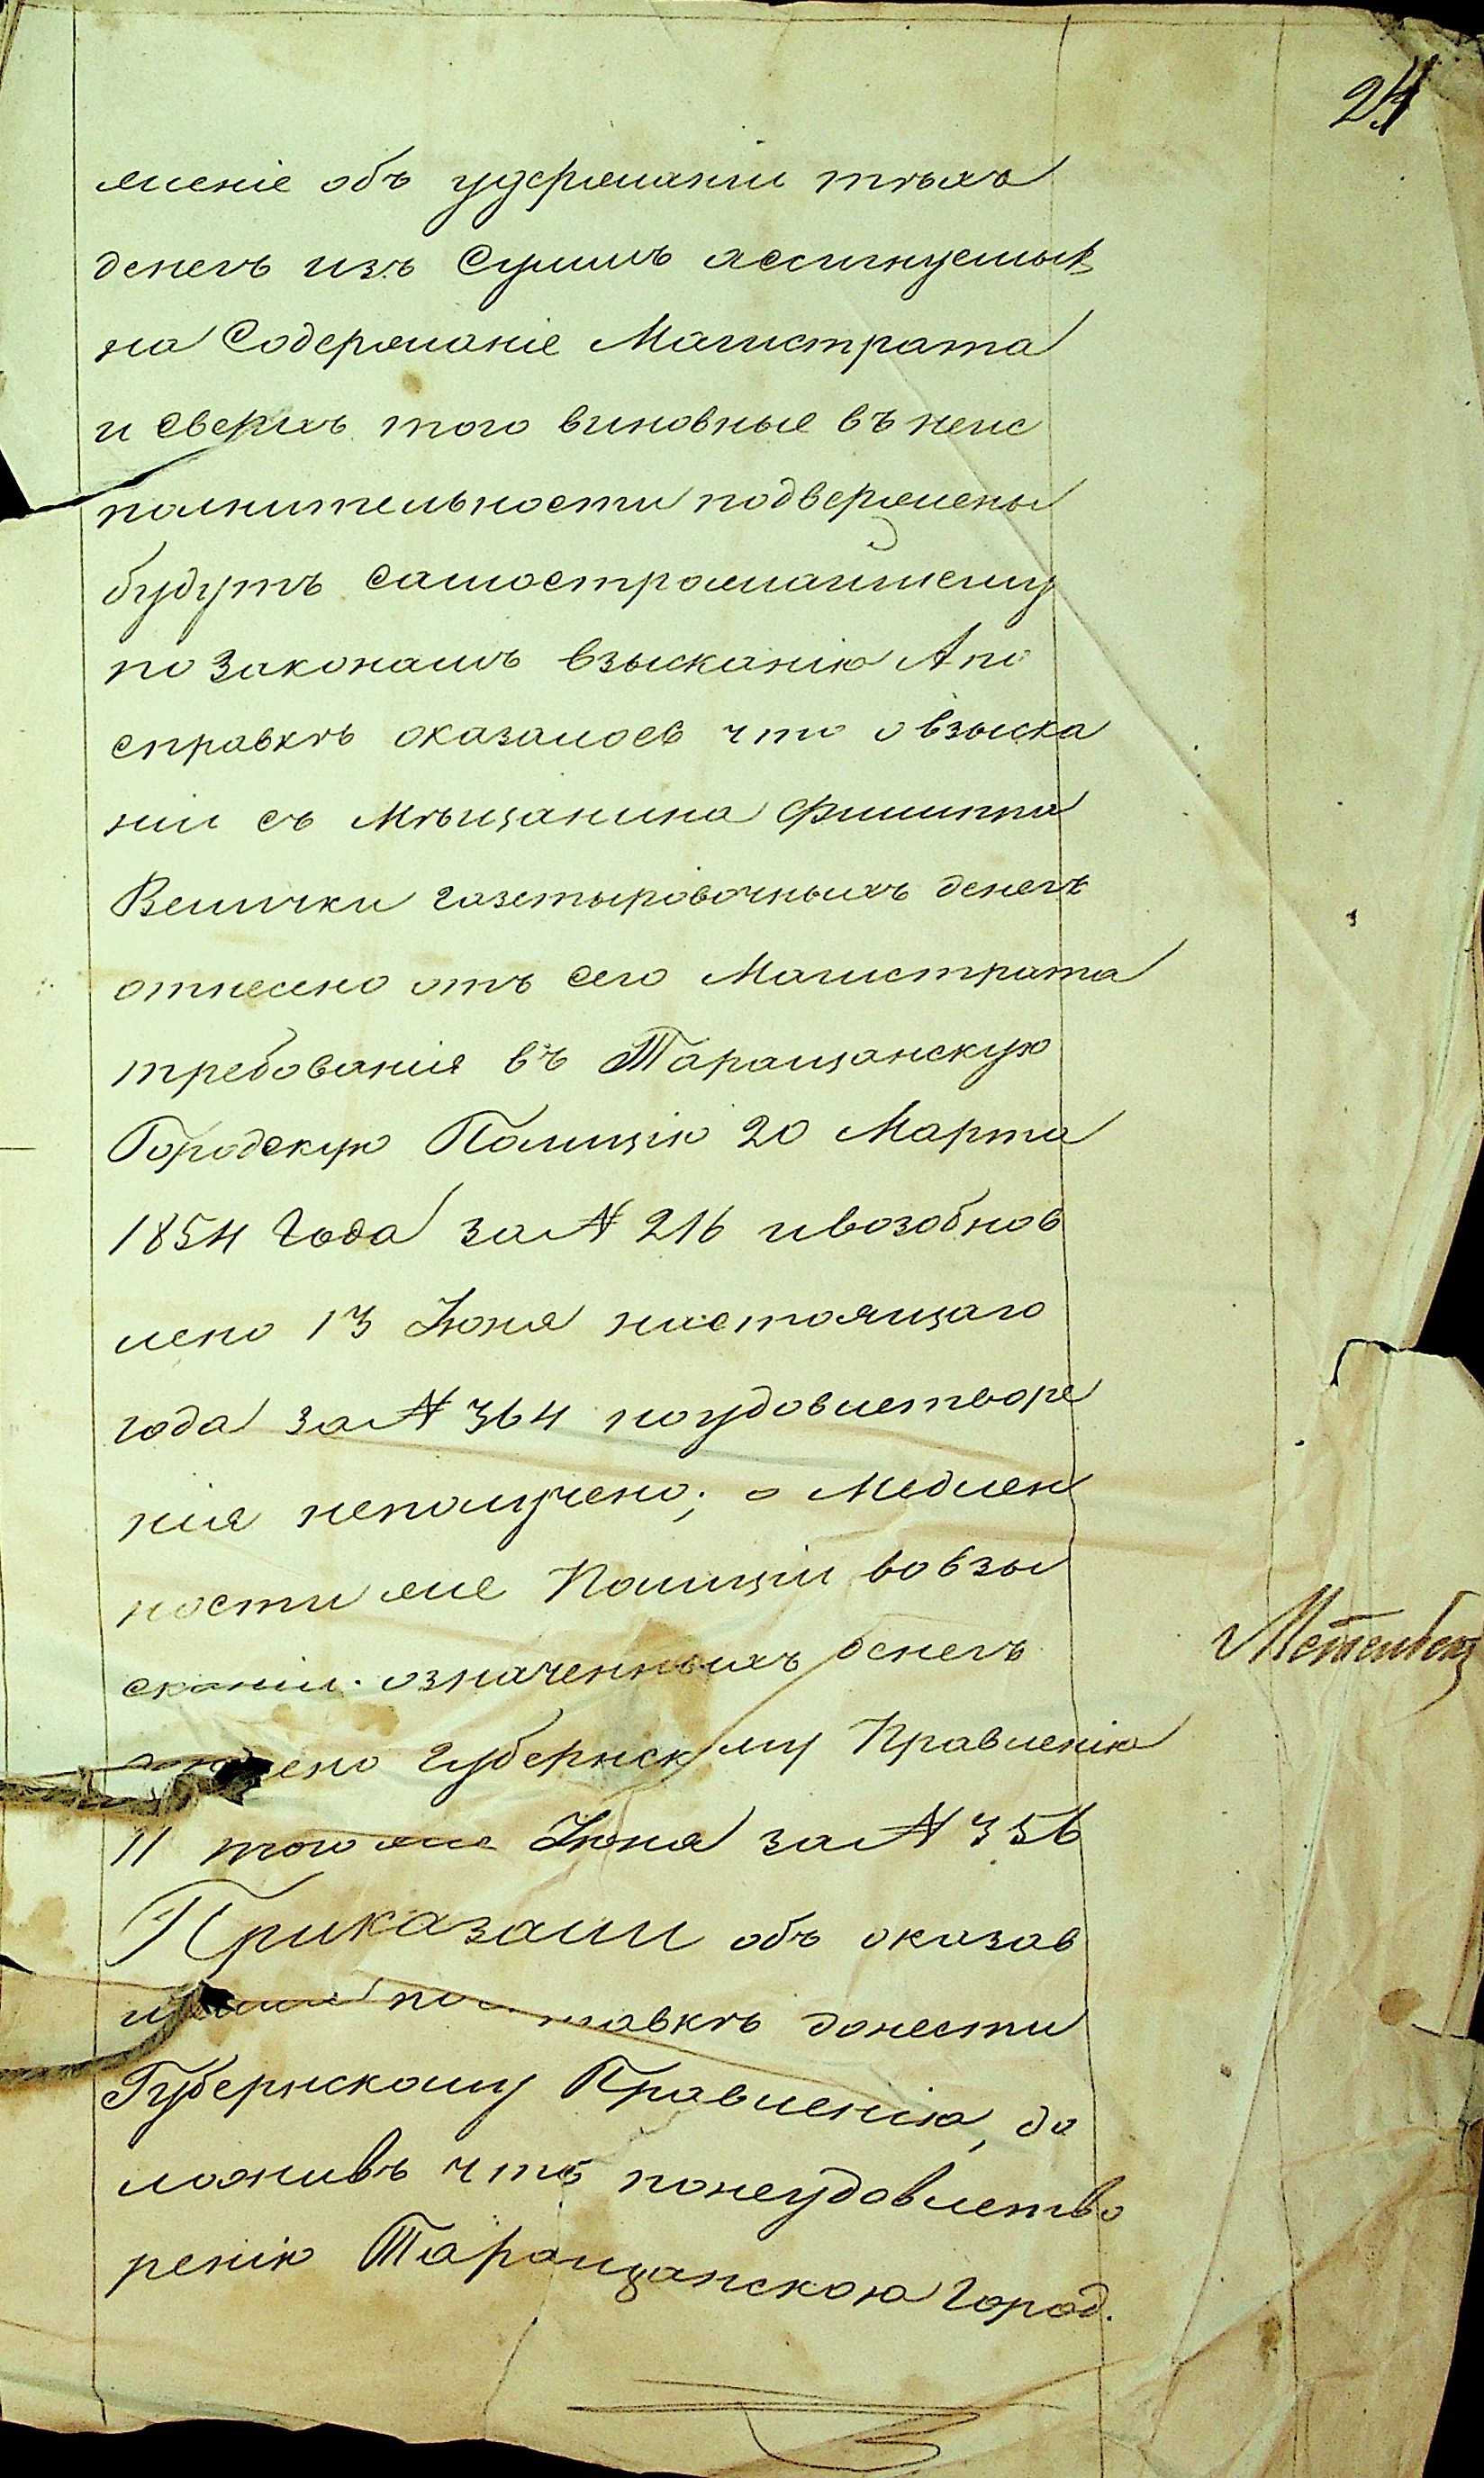 24
жение объ удержаніи тѣхъ
денегъ изъ Суммъ ассигнуемых
на Содержаніе Магистрата
и сверхъ того виновные въ неис
полнительности подвержены
будутъ самостромайшему
по законамъ взысканію А по
справкѣ оказалось что о взыска
ніи съ Мѣщанина Филиппа
Велички газетыровочныхъ денегъ
отнесено отъ сего Магистрата
требованія въ Таращанскую
Городскую Полицію 20 Марта
1854 Года за № 216 и возобнов
лено 13 Іюня настоящаго
года за № 364 но удовлетворе
нія неполучено; о Медлен
ности же Полиціи во взы
сканіи означенныхъ денегъ
Губернскому Правленію
11 того же Іюня за № 356
Приказали объ оказав
донести
Губернскому Правленію, до
ложивъ что понеудовлетво
ренію Таращанскою Город.